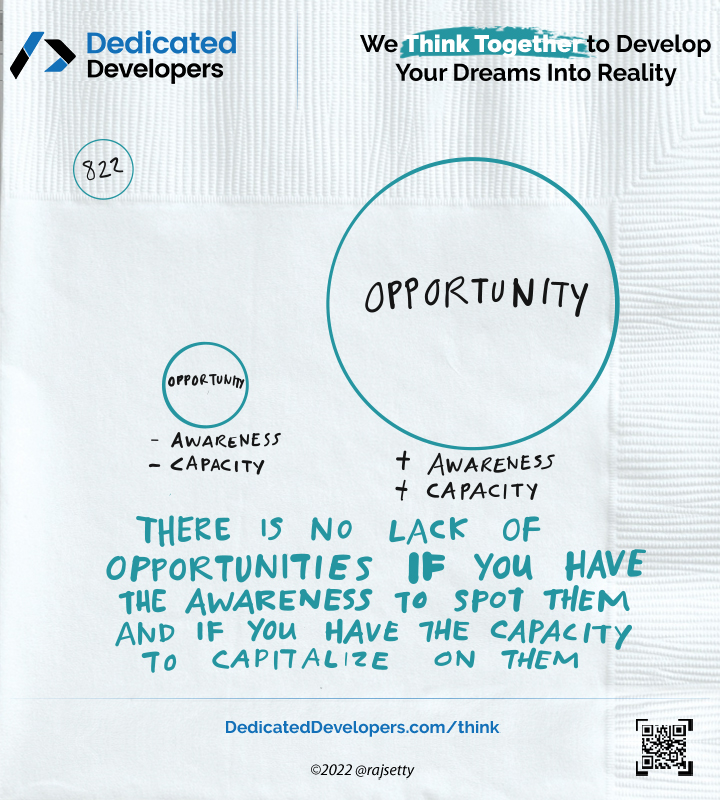 Dedicated
Developers
We Think Together to Develop
Your Dreams Into Reality
822
OPPORTUNITY
OPPORTUNITY
- AWARENESS
- CAPACITY
+ AWARENESS
+ CAPACITY
THERE IS NO LACK OF
OPPORTUNITIES IF YOU HAVE
THE AWARENESS TO SPOT THEM
AND IF YOU HAVE THE CAPACITY
TO CAPITALIZE ON THEM
DedicatedDevelopers.com/think
©2022 @rajsetty